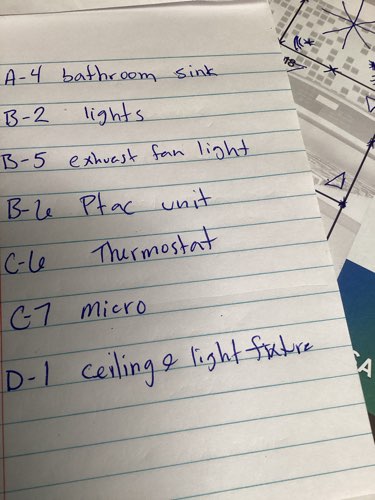 A-4 bathroom sink
B-2 lights
B-5 exhuast fan light
B-6 Ptac unit
C-6 Thermostat
C-7 micro
D-1 ceiling & light fixture